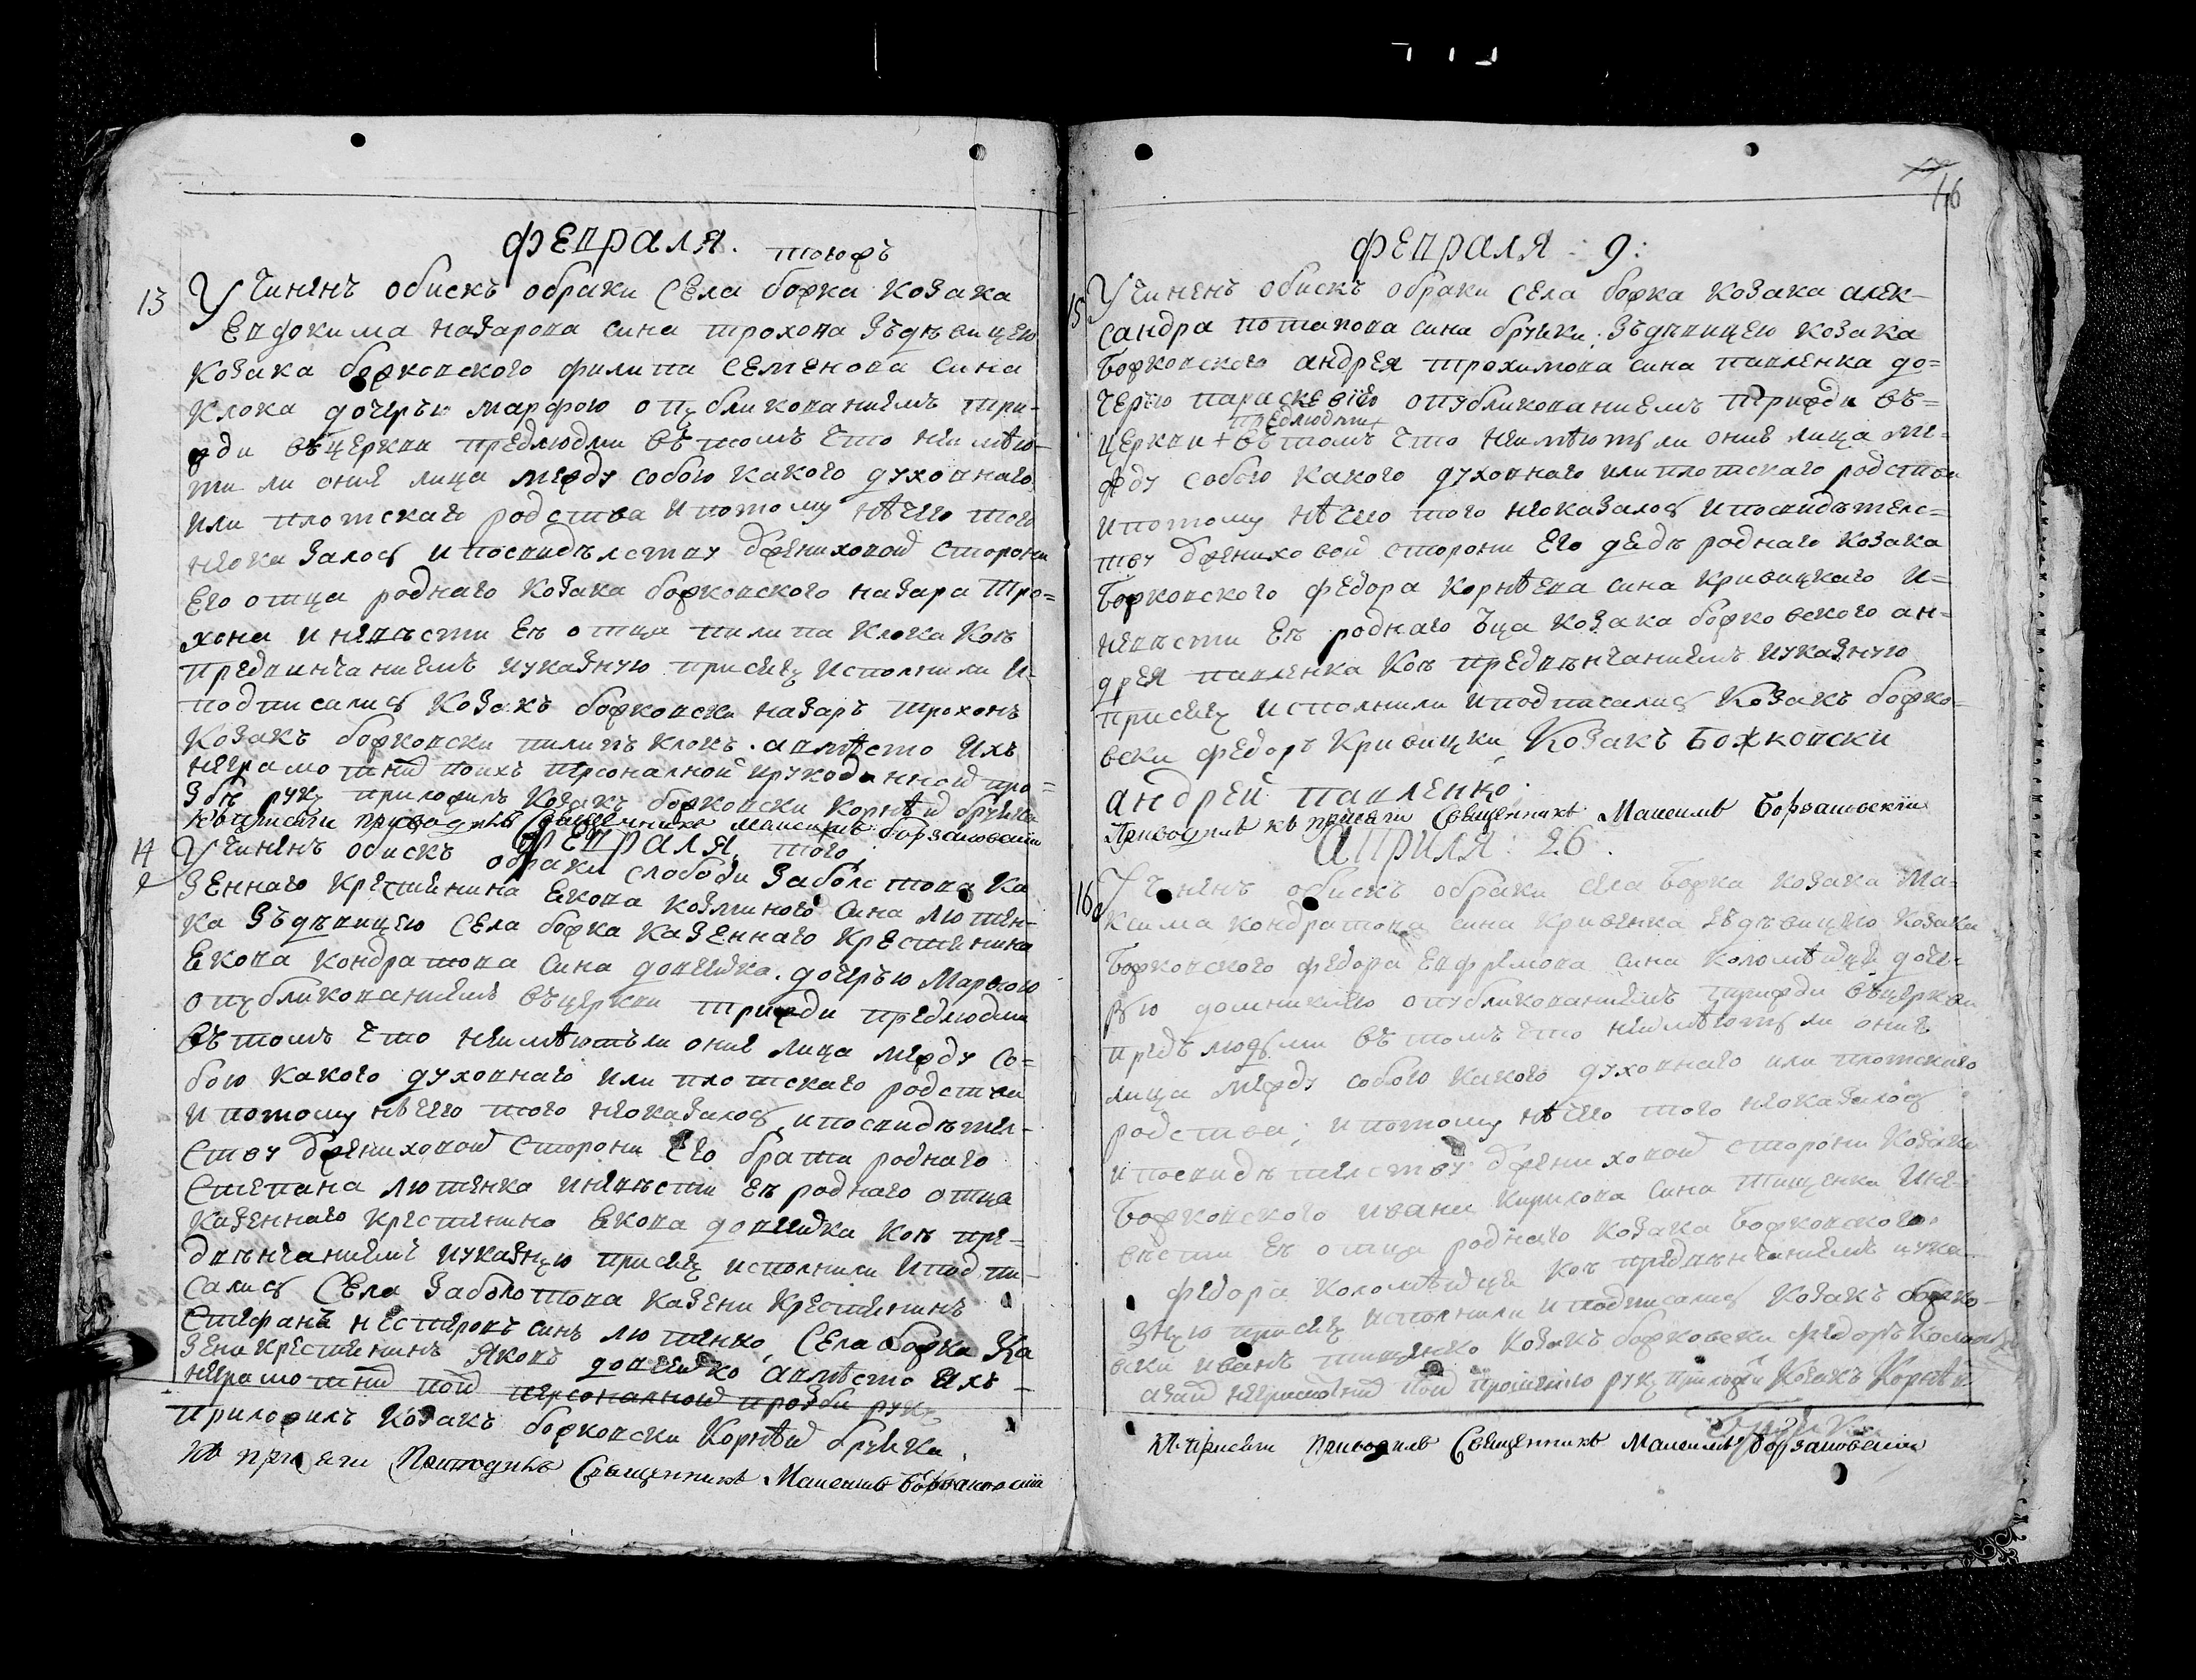 февраля. тоюжъ
13 Учиненъ обискъ обраки Села божка козака
Евдокима назарова сина трохона зъдѣвицею
козака божковского филипа Семенова Сина
Клока дочерью марфою опубликованиемъ три-
жди въцеркви предлюдми вътомъ что неимѣю-
ти ли оние лица между собою какого духовнаго
или плотскаго родства ипотому нѣчего того
неока залось ипосвидѣлству бжениховой сторони
Его отца роднаго козака божковского назара Тро=
хона иневѣсти Еѣ отца пилипа клока коѣ
предвинчаниемъ иуказную присягу исполнили и-
подписались козакъ божковски назаръ трохонъ
Козакъ божковски пилипъ клокъ. авмѣсто ихъ
неграмотний поихъ персоналной ирукоданной про=
збѣ руку приложилъ козакъ божковски корнѣй бружка
къ присяги приводилъ Священникъ Максимъ Борзаковский
февраля, того
14 Учиненъ обискъ обраки слободи Заболотова Ка
2 зеннаго крестянина Якова козминого Сина лютен-
ка зъдѣвицею Села божка казеннаго Крестянина
Якова кондратова сина довейка. дочерью Марфою
опубликованиемъ въцеркви трижди предлюдми
вътомъ что неимѣютъли оние лица между со=
бою какого духовнаго или плотскаго родства
ипотому нѣчего того неоказалось, ипосвидѣтел-
ству бжениховой сторони Его брата роднаго
Степана лютенка иневѣсти Еѣ роднаго отца
казеннаго крестянина Якова довейка коѣ пре-
двѣнчаниемъ иуказную присягу исполнили иподпи-
сались Села Заболотова казени Крестянинъ
Стефанъ нестеровъ синъ лютенко, Села божка Ка
зени крестянинъ Яковъ довейко авмѣсто ихъ
неграмотний поих персоналной прозби руку
приложилъ козакъ божковски корнѣй бружка.
къ присяги Приводилъ Священникъ Максимъ Борзаковский
16
февраля : 9 :
15 Учиненъ обискъ обраки села божка козака алек-
сандра потапова сина бружки, зъдѣвицею козака
божковского андрея трохимова сина павленка до=
черью параскевiею опубликованиемъ трижди въ=
предлюдми
церкви + вътомъ что неимѣютъ ли оние лица ме=
жду собою какого духовнаго или плотскаго родства
ипотому нѣчего того неоказалось ипосвидѣтелс=
тву бжениховой сторони Его дядѣ роднаго козака
божковского федора корнѣева сина кривицкаго и=
невѣсти Еѣ роднаго ѡца козака божковского ан-
дрея павленка коѣ предвѣнчаниемъ иуказную
присягу исполнили иподписались козакъ божко-
вски федоръ Кривицки, Козакъ Божковски
андрей павленко.
Приводилъ къ присяги Священникъ Максимъ Борзаковский
Априля : 26 :
16 Учиненъ обискъ обраки Села божка козака Ма=
ксима кондратова сина кривенка зъдѣвицею козака
божковского федора Евфремова сина коломѣйця доче-
рью домникиею опубликованиемъ трижди въцеркви
предъ людьми вътомъ что неимѣютъ ли оние
лица между собою какого духовнаго или плотскаго
родства; ипотому нѣчего того неоказалось
ипосвидѣтелству бжениховой сторони козака
божковского ивана кирилова сина тищенка ине-
вѣсти Еѣ отца роднаго козака божковского
федора коломѣйця коѣ предвѣнчаниемъ иука-
зную присягу исполнили иподписались козакъ божко-
вски иванъ тищенко козакъ божковски федоръ
неграмотний поих прошению руку приложи Козакъ Корнѣй
Бружка
къ присяги Приводилъ Священникъ Максимъ Борзаковский